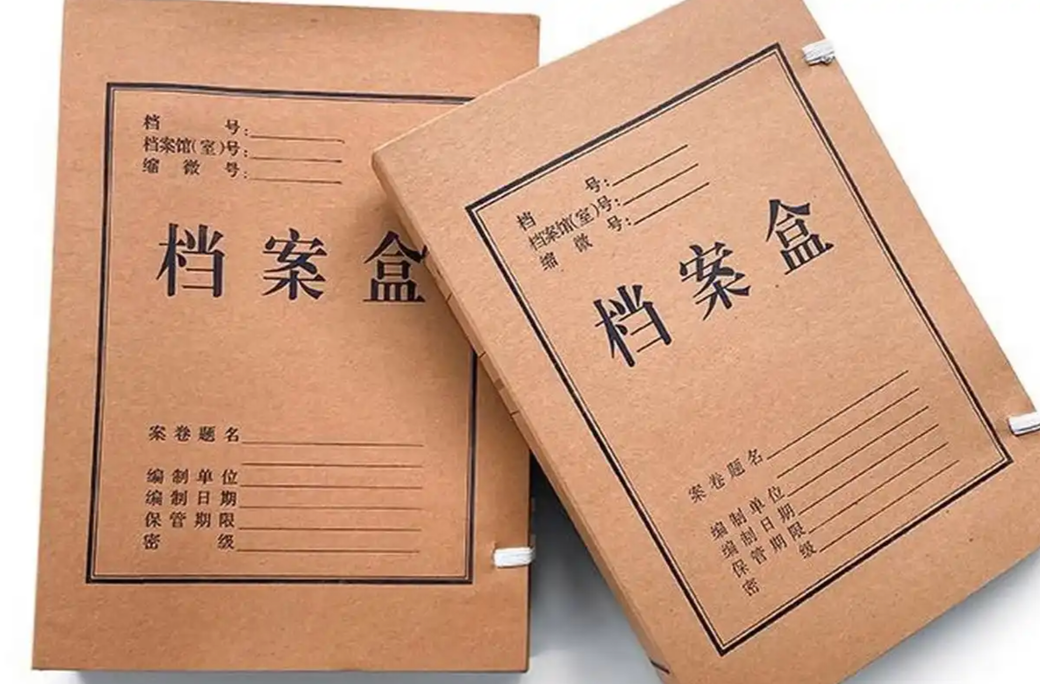 档 号:
档案馆(室)号:
缩 微 号:
档 案 盒
案 卷 题 名
编 制 单 位
编 制 日 期
保 管 期 限
密 级
档 号:
档案馆(室)号:
缩 微 号:
档 案 盒
案 卷 题 名
编 制 单 位
编 制 日 期
保 管 期 限
密 级